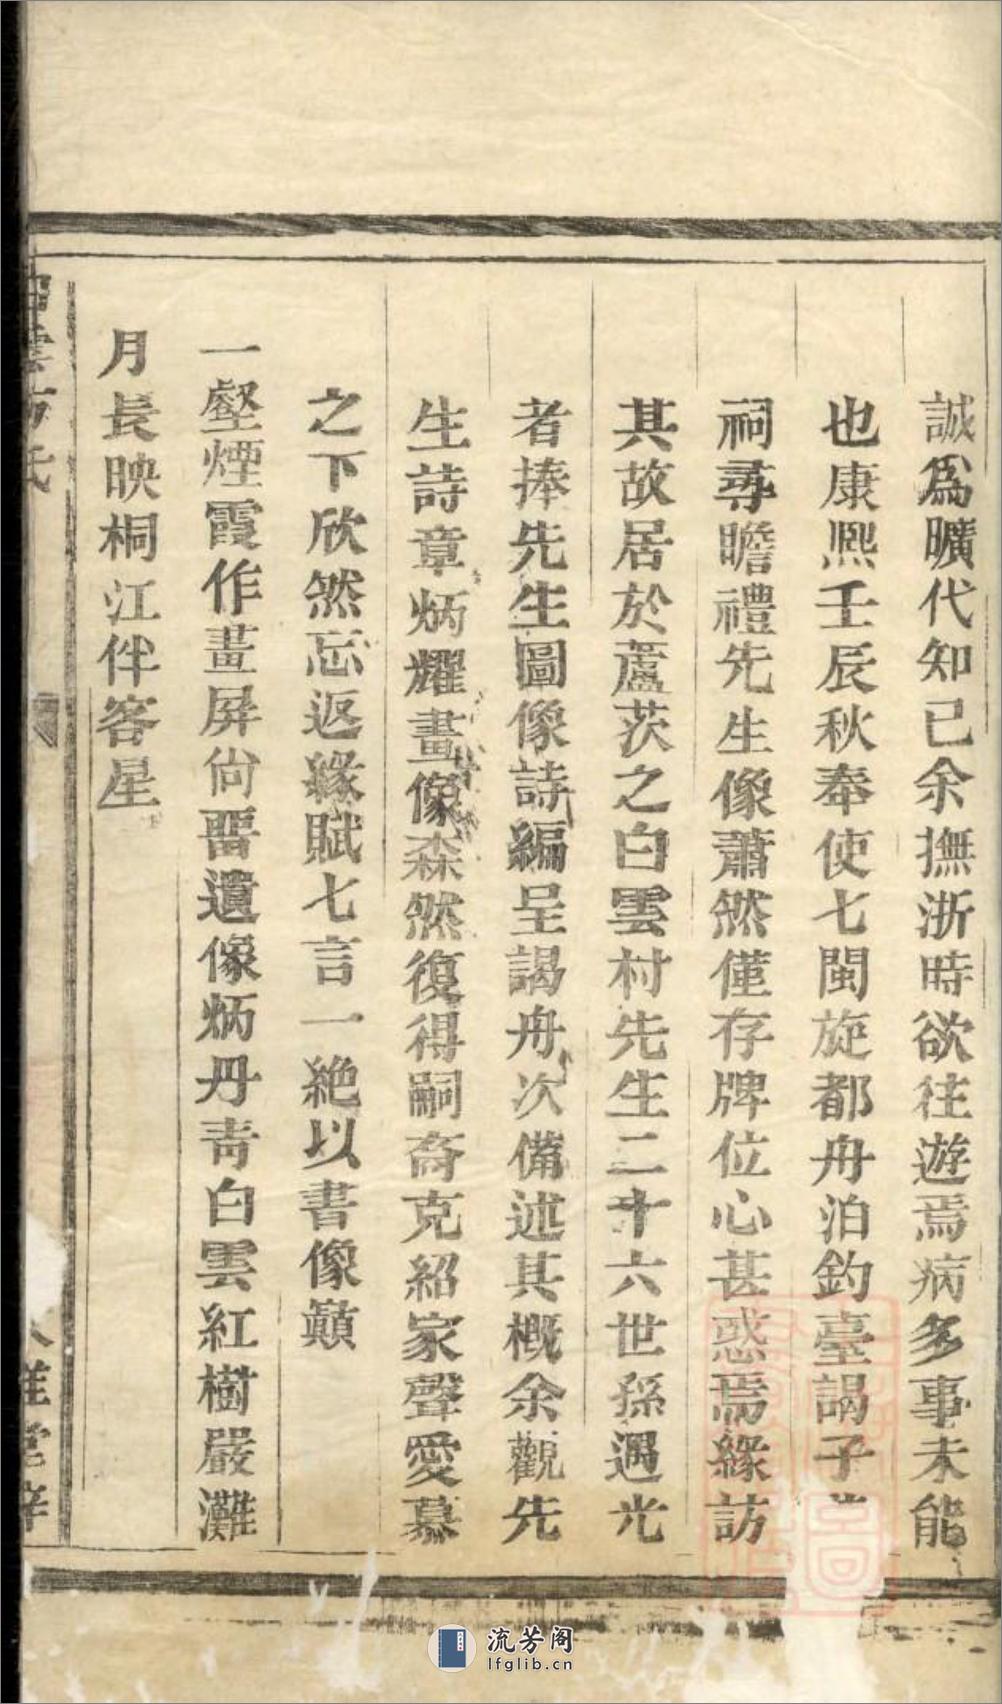 誠爲曠代知已余撫浙時欲往遊焉病多事未能
也康熈壬辰秋奉使七閩旋都舟泊釣臺謁子
祠尋瞻禮先生像蕭然僅存牌位心甚惑焉緣訪
其故居於蘆茨之白雲村先生二十六世孫遇光
者捧先生圖像詩編呈謁舟次備述其槪余觀先
生詩章炳耀畫像森然復得嗣裔克紹家聲愛慕
之下欣然忘返緣賦七言一絶以書像巔
一壑煙霞作畫屏尙畱遺像炳丹靑白雲紅樹嚴灘
月長映桐江伴客星
雲方氏
堂梓
流芳阁
lfglib.cn